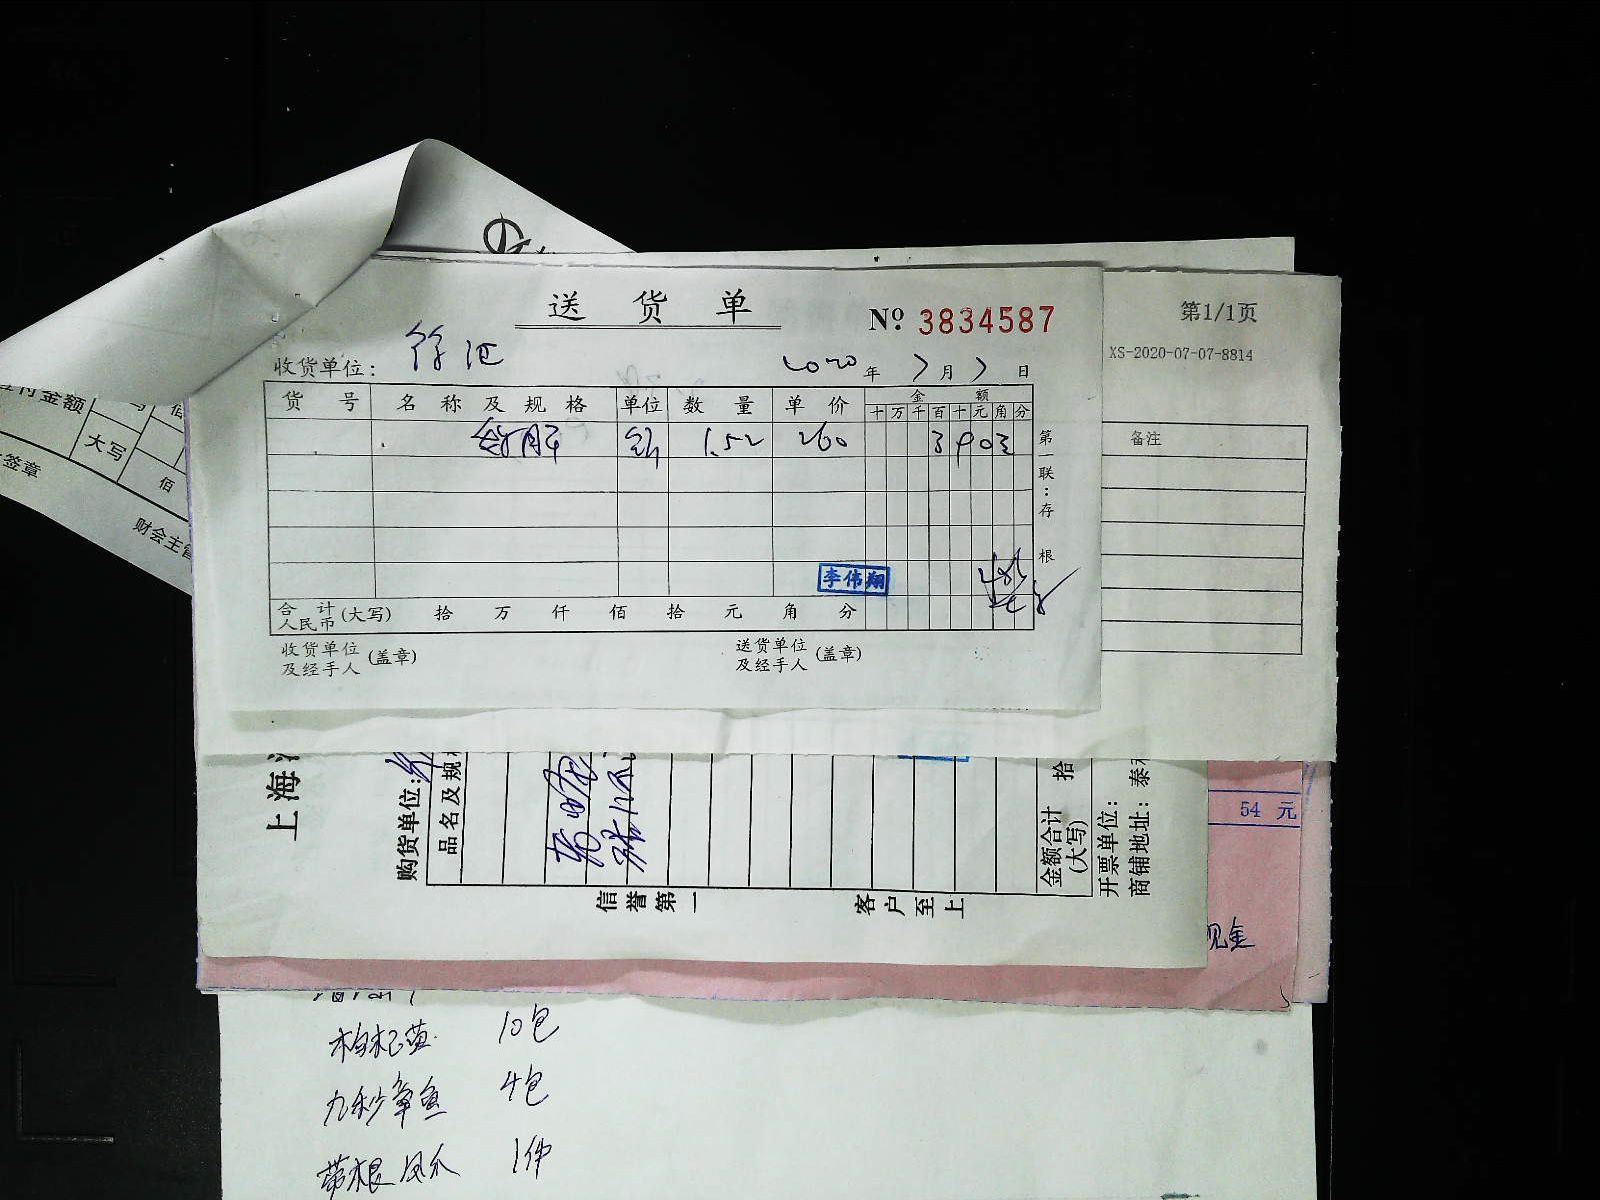 送货单
№ 3834587
第1/1页
XS-2020-07-07-8814
收货单位: 徐汇
2020年7月7日
货号 名称及规格 单位 数量 单价 金额
十万千百十元角分
1.52 260
第一联:存根
备注
李伟翔
合计人民币(大写) 拾 万 仟 佰 拾 元 角 分
收货单位及经手人(盖章)
送货单位及经手人(盖章)
付金额
大写
佰
佰
签章
财会主管
上海
购货单位:
品名及规
金额合计(大写)
拾
开票单位:
商铺地址: 泰
信誉第一
客户至上
54 元
现金
枸杞苗 10包
九秒章鱼 4包
带根凤爪 1件